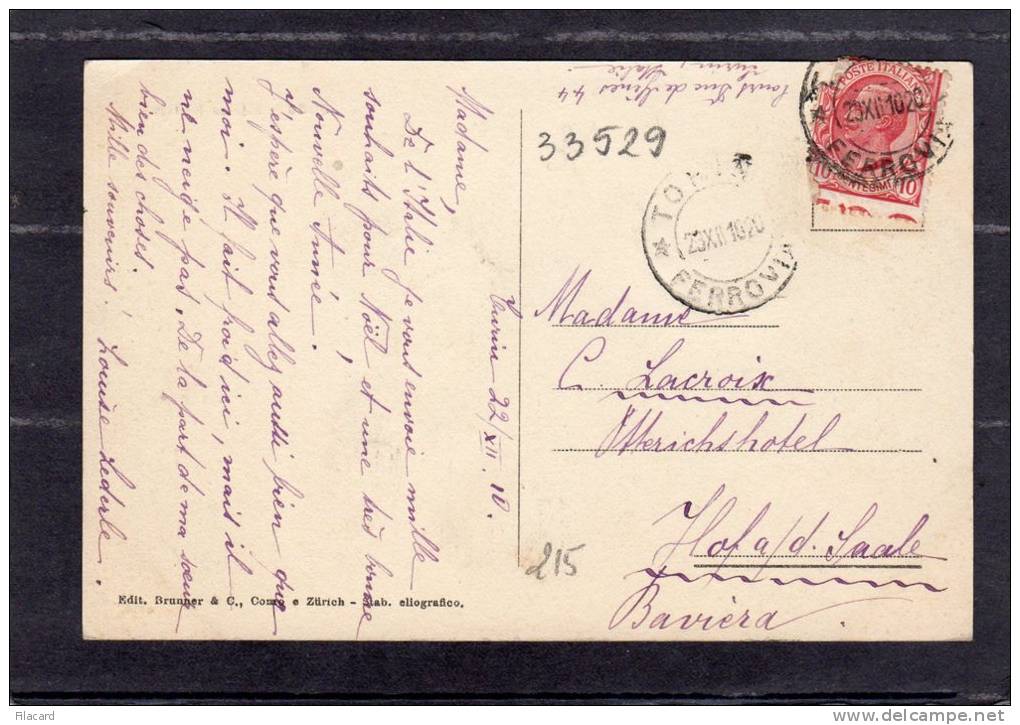 Turin 22/XII. 10.
Madame,
De l'Italie je vous envoie mille
souhaits pour Noël et une très bonne
Nouvelle Année.
J'espère que vous allez aussi bien que
moi. Il fait froid ici, mais il
ne neige pas. De la part de ma sœur
bien des choses.
Mille souvenirs! Louise Lederle.
Cours Duc de Gênes 44
Turin, Italie
33529
POSTE ITALIANE
10 CENTESIMI 10
23XII1020
FERROVIA
TORINO
23XII1020
FERROVIA
Madame
C. Lacroix
Hof a/d. Saale
Baviera
215
Edit. Brunner & C., Como e Zürich - Stab. eliografico.
Filacard
delcampe.net